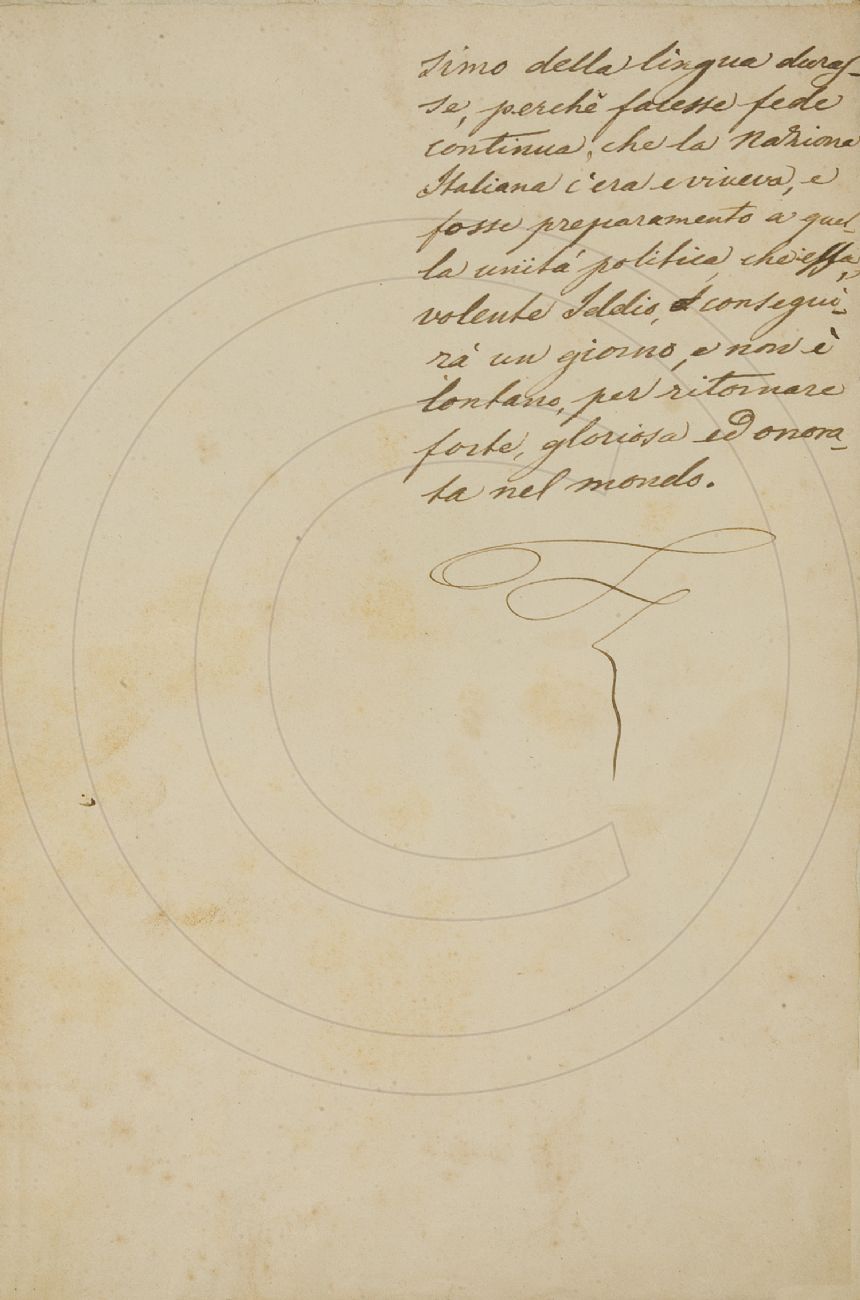 simo della lingua duras-
se, perchè facesse fede
continua, che la Nazione
Italiana c'era e viveva, e
fosse preparamento a quel-
la unità politica, che essa,
volente Iddio, conseguì-
rà un giorno, e non è
lontano, per ritornare
forte, gloriosa ed onora-
ta nel mondo.